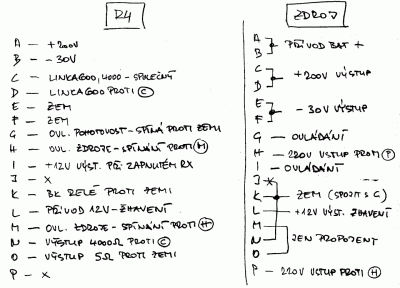 R4
A – +200V
B – -30V
C – LINKA600,4000 - SPOLEČNÝ
D – LINKA600 PROTI C
E – ZEM
F – ZEM
G – OVL. POHOTOVOST - SPÍNÁ PROTI ZEMI
H – OVL. ZDROJE - SPÍNÁNÍ PROTI M
I – +12V VÝST. PŘI ZAPNUTÉM RX
J – X
K – BK RELÉ PROTI ZEMI
L – PŘÍVOD 12V - ŽHAVENÍ
M – OVL. ZDROJE - SPÍNÁNÍ PROTI H
N – VÝSTUP 4000Ω PROTI C
O – VÝSTUP 5Ω PROTI ZEMI
P – X
ZDROJ
A
B PŘÍVOD BAT +
C
D +200V VÝSTUP
E
F -30V VÝSTUP
G – OVLÁDÁNÍ
H – 220V VSTUP PROTI P
I – OVLÁDÁNÍ
J X
K ZEM (SPOJIT S G)
L – +12V VÝST. ŽHAVENÍ
M
N JEN PROPOJENÝ
O
P – 220V VSTUP PROTI H